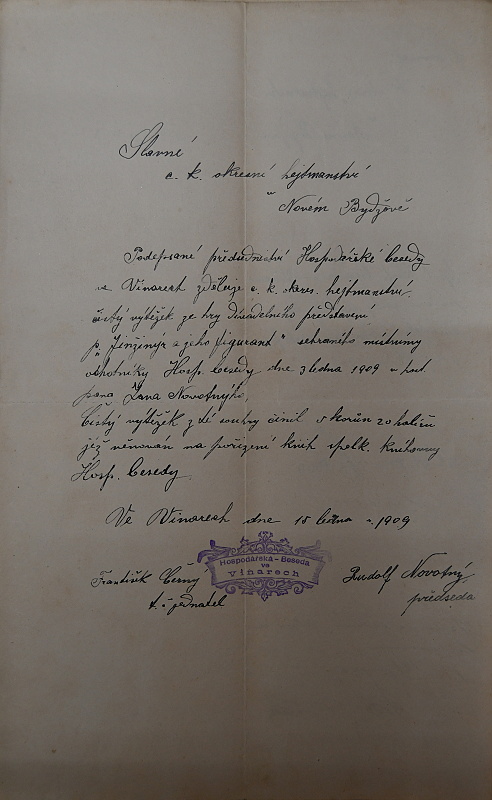 Slavné
c. k. okresní hejtmanství
v
Novém Bydžově
Podepsané předsednictví Hospodářské besedy
ve Vinarech zděluje c. k. okres. hejtmanství
čistý výtěžek ze hry divadelního představení
p. "Inžinýr a jeho figurant" sehraného místními
ochotníky Hosp. besedy dne 3 ledna 1909 v host.
pana Jana Novotného,
Čistý výtěžek z té souhry činil 5 korun 20 haléřů
již věnován na pořízení knih spolk. knihovny
Hosp. besedy.
Ve Vinarech dne 15 ledna r. 1909
Hospodářská-Beseda
ve
Vinarech
František Černý
t. č. jednatel
Rudolf Novotný
předseda